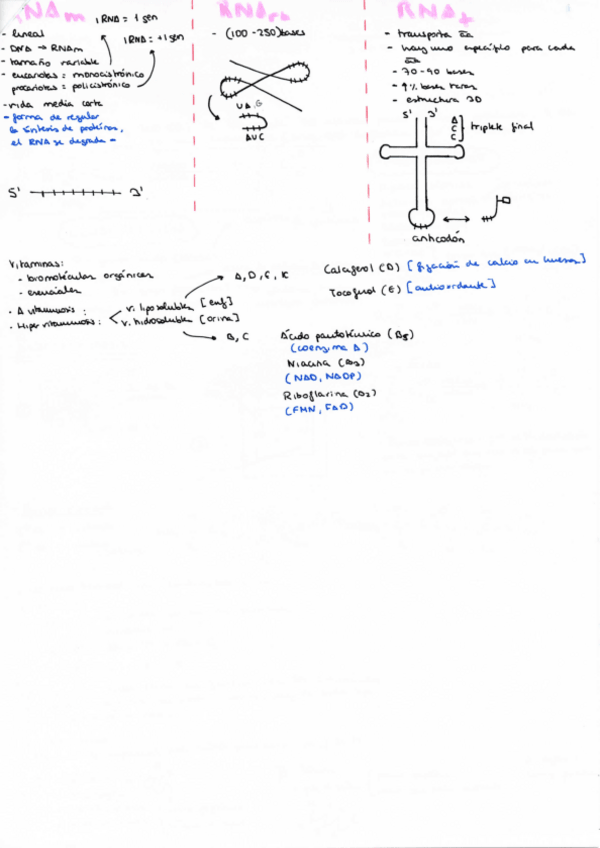 RNAm
1 RNA = 1 gen
1 RNA = +1 gen
- lineal
- DNA → RNAm
- tamaño variable
- eucariotas = monocistrónico
procariotas = policistrónico
- vida media corta
- forma de regular
la síntesis de proteínas,
el RNA se degrada -
5' 3'
RNA
- (100 - 250) bases
UA G
AUC
RNAt
- transporta aa
- hay uno específico para cada
aa
- 70 - 90 bases
- % bases raras
- estructura 3D
5' 3'
A
C
C
triplete final
anticodón
Vitaminas:
- biomoléculas orgánicas
- esenciales
- A vitaminosis:
- Hiper vitaminosis:
v. liposolubles [enf]
v. hidrosolubles [orina]
A, D, E, K
B, C
Calciferol (D) [fijación de calcio en huesos]
Tocoferol (E) [antioxidante]
Ácido pantoténico (B5)
(coenzima A)
Niacina (B3)
(NAD, NADP)
Riboflavina (B2)
(FMN, FAD)